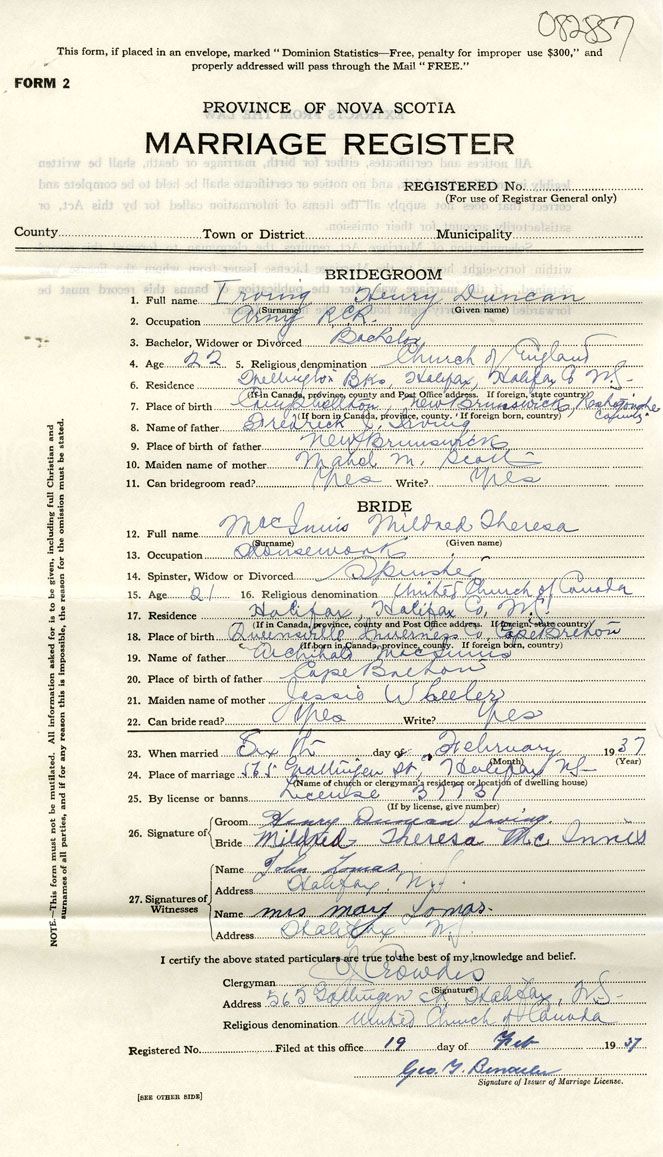 082887
This form, if placed in an envelope, marked "Dominion Statistics—Free, penalty for improper use $300," and
properly addressed will pass through the Mail "FREE."
FORM 2
PROVINCE OF NOVA SCOTIA
MARRIAGE REGISTER
REGISTERED No.
(For use of Registrar General only)
County Town or District Municipality
BRIDEGROOM
1. Full name Irving Henry Duncan
(Surname) (Given name)
2. Occupation Army R.C.R.
3. Bachelor, Widower or Divorced Bachelor
4. Age 22 5. Religious denomination Church of England
6. Residence Bks, Halifax, Halifax Co N.S.
(If in Canada, province, county and Post Office address. If foreign, state country)
7. Place of birth Campbellton, New Brunswick, Restigouche County
(If born in Canada, province, county. If foreign born, country)
8. Name of father Fredrick J. Irving
9. Place of birth of father New Brunswick
10. Maiden name of mother Mabel M. Scott
11. Can bridegroom read? Yes Write? Yes
BRIDE
12. Full name MacInnis Mildred Theresa
(Surname) (Given name)
13. Occupation Housework
14. Spinster, Widow or Divorced Spinster
15. Age 21 16. Religious denomination United Church of Canada
17. Residence Halifax, Halifax Co, N.S.
(If in Canada, province, county and Post Office address. If foreign, state country)
18. Place of birth Queensville Inverness Co, Cape Breton
(If born in Canada, province, county. If foreign born, country)
19. Name of father Archibald MacInnis
20. Place of birth of father Cape Breton
21. Maiden name of mother Jessie Wheeler
22. Can bride read? Yes Write? Yes
23. When married Six th day of February 1937
(Month) (Year)
24. Place of marriage 565 Gottingen St, Halifax N.S.
(Name of church or clergyman's residence or location of dwelling house)
25. By license or banns License 37731
(If by license, give number)
26. Signature of
Groom Henry Duncan Irving.
Bride Mildred Theresa McInnis
27. Signatures of Witnesses
Name John Lomas
Address Halifax, N.S.
Name Mrs May Lomas.
Address Halifax N.S.
I certify the above stated particulars are true to the best of my knowledge and belief.
Clergyman Crowdis
(Signature)
Address 565 Gottingen St, Halifax, N.S.
Religious denomination United Church of Canada
Registered No. Filed at this office 19 day of Feb 1937
Geo. T.
Signature of Issuer of Marriage License.
[SEE OTHER SIDE]
NOTE.—This form must not be mutilated. All information asked for is to be given, including full Christian and
surnames of all parties, and if for any reason this is impossible, the reason for the omission must be stated.